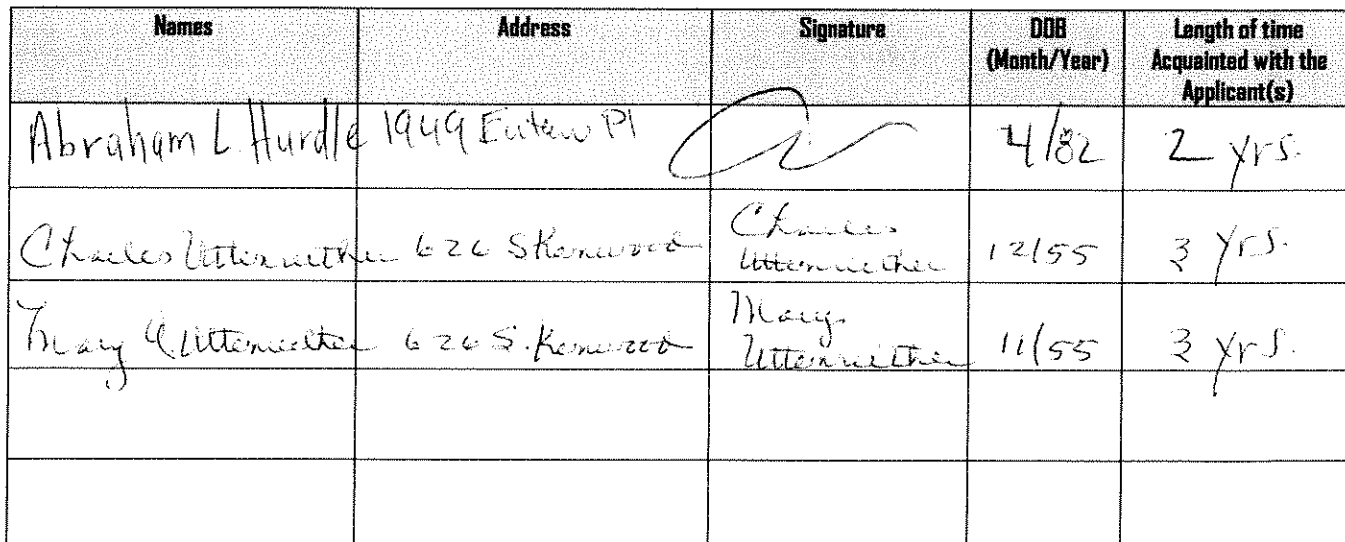 Names Address Signature DOB (Month/Year) Length of time Acquainted with the Applicant(s)
Abraham L. Hurdle 1949 Eutaw Pl 4/82 2 yrs.
Charles Uttenreither 626 S Kenwood Charles Uttenreither 12/55 3 yrs.
Mary Uttenreither 626 S. Kenwood Mary Uttenreither 11/55 3 yrs.